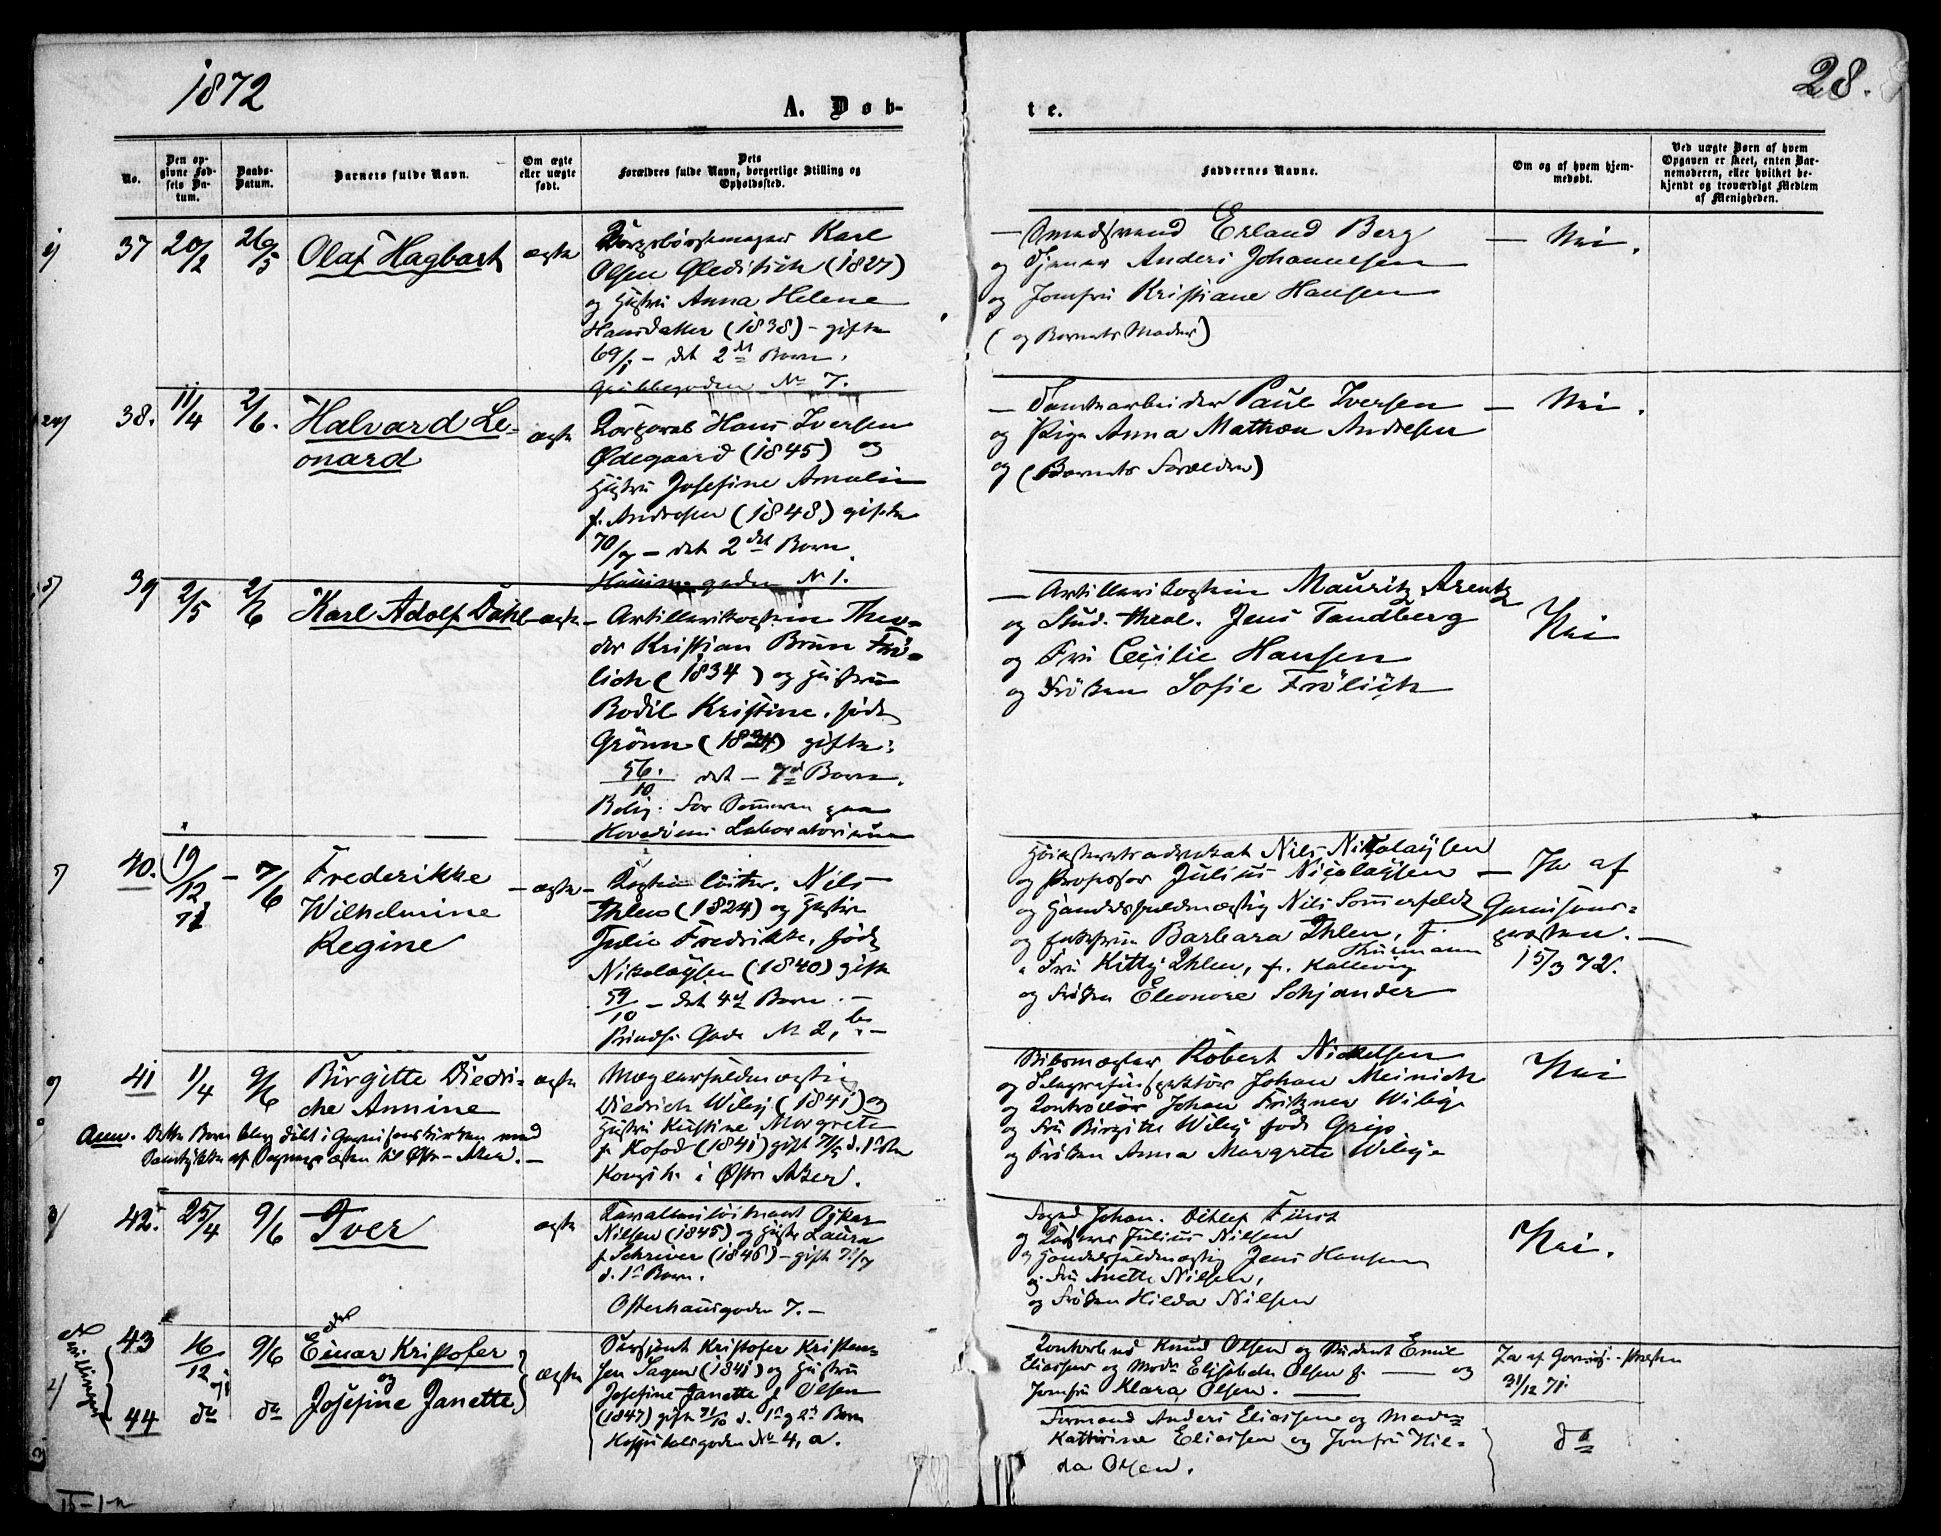 1872
28.
A. Døb-
te.
No.
Den op-
givne Fød-
sels Da-
tum.
Daabs-
Datum.
Barnets fulde Navn.
Om ægte
eller uægte
født.
Dets
Forældres fulde Navn, borgerlige Stilling og
Opholdssted.
Faddernes Navne.
Om og af hvem hjem-
medøbt.
Ved uægte Børn af hvem
Opgaven er skeet, enten Bar-
nemoderen, eller hvilket be-
kjendt og troværdigt Medlem
af Menigheden.
37
20/2
26/5
Olaf Hagbart
ægte
Karl
Olsen Gleditsch (1827)
og Hustru Anna Helene
Hansdatter (1838) - gifte
69/1 - det 2det Barn.
Grubbegaden No 7.
Erland Berg
og Tjener Anders Johannesen
og Jomfru Kristiane Hansen
(og Barnets Moder)
- Nei.
38.
11/4
2/6.
Halvard Le-
onard
ægte
Korporal Hans Iversen
Ødegaard (1845) og
Hustru Josefine Amalie
f. Andresen (1848) gifte
70/7 - det 2det Barn.
No 1.
- Paul Iversen
og Pige Anna Mathea Andresen
og (Barnets Forældre)
- Nei.
39
2/5
2/6
Karl Adolf Dahl
ægte
- Artillerikaptein Theo-
dor Kristian Brun Frö-
lich (1834) og Hustru
Bodil Kristine, født
Grönn (18) gifte:
56./10 det - 7de Barn.
Bolig: For Sommeren paa
Hovedöens Laboratorium
- Artillerikaptein Mauritz Arentz
og Stud. theol. Jens Tandberg
og Fru Cecilie Hansen
og Fröken Sofie Frölich
Nei
40.
19/12 71
- 7/6
Frederikke
Wilhelmine
Regine
- ægte -
Nils
Ihlen (1824) og Hustru
Julie Fredrikke, født
Nikolaysen (1840) gift
59/10 - det 4de Barn. -
Prinds. Gade No 2, b. -
Höiesteretsadvokat Nils Nikolaysen
og Professor Julius Nicolaysen
og Handelsfuldmægtig Nils Sommerfeldt
og Enkefrue Barbara Ihlen, f.
Thurmann
" Fru Kitty Ihlen, f. Kallevig
og Fröken Eleonore Schjander
- Ja af
Garnisons-
presten. -
15/3 72.
41
11/4
9/6
Birgitte Diedri-
che Annine
ægte
Mæglerfuldmægtig
Diedrich Wiby (1841) og
Hustru Kristine Margrete
f. Kofod (1841) gift 71/5 d. 1ste
i Østr Aker.
Skibsmægler Robert Nickelsen
og Telegrafinspektör Johan Meinich
og Kontrollör Johan Fritzner Wiby
og Fru Birgitte Wiby født Grip
og Fröken Anna Margrete Wiby
Nei
Anm. Dette Barn blev döbt i Garnisonskirken med
Samtykke af Sognepresten til Östr-Aker. -
42.
25/4
9/6
Iver
ægte
Oskar
Nilsen (1845) og Hustr Laura
f. Schriver (1846) - gift 71/7
d. 1ste Barn.
Osterhausgaden 7. -
Johan. Ditlef Fürst
og Julius Nilsen
og Handelsfuldmægtig Jens Hansen
og Fru Anette Nilsen,
og Fröken Hilda Nilsen
Nei.
Tvillinger
43
16/12 71
9/6
Einar Kristofer
og
ægte
Sersjent Kristofer Kristen-
sen Sagen (1841) og Hustru
Josefine Janette f. Olsen
(1847) gift 71/10 d. 1ste og 2det Barn
Hospitalsgaden No 4, a.
Knud Olsen og Student Emil
Eliassen og Mad. Elisabeth Olsen f. - og
Jomfru Klara Olsen.
Ja af Garnis. - Presten
31/12 71.
44
do
do
Josefine Janette
Formand Anders Eliassen og Mada-
Kathrine Eliassen og Jomfru Hil-
da Olsen.
do